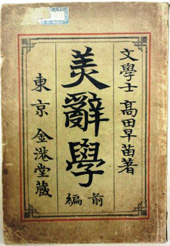 文學士 高田早苗著
美辭學 前編
東京 金港堂藏